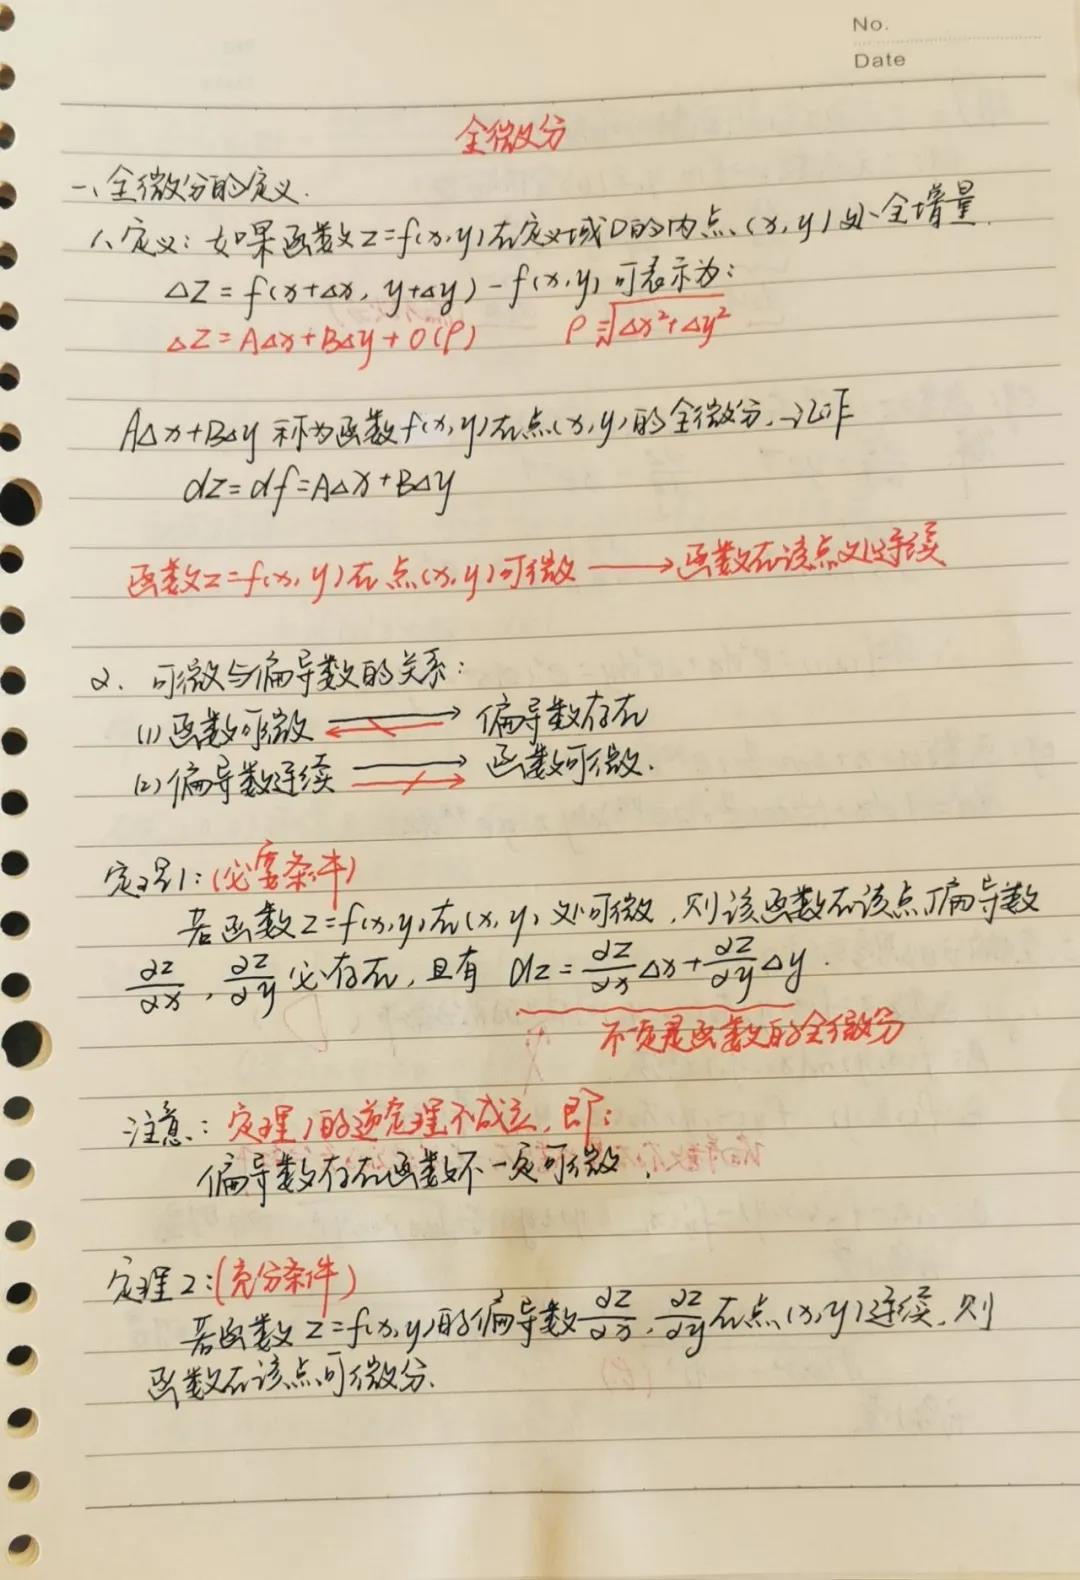 No.
Date
全微分
一、全微分的定义.
1、定义：如果函数z=f(x,y)在定义域D的内点(x,y)处全增量
△z=f(x+△x, y+△y)-f(x,y)可表示为：
△z=A△x+B△y+o(ρ) ρ=√△x²+△y²
A△x+B△y 称为函数f(x,y)在点(x,y)的全微分,记作
dz=df=A△x+B△y
函数z=f(x,y)在点(x,y)可微⟶函数在该点处连续
2. 可微与偏导数的关系：
(1)函数可微 偏导数存在
(2)偏导数连续 函数可微.
定理1：(必要条件)
若函数z=f(x,y)在(x,y)处可微,则该函数在该点偏导数
∂z/∂x , ∂z/∂y 必存在,且有 dz=∂z/∂x△x+∂z/∂y△y.
不一定是函数的全微分
注意：定理1的逆定理不成立,即：
偏导数存在函数不一定可微.
定理2：(充分条件)
若函数z=f(x,y)的偏导数∂z/∂x,∂z/∂y在点(x,y)连续,则
函数在该点可微分.